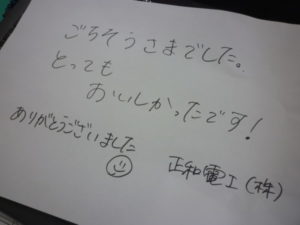 ごちそうさまでした。
とっても
おいしかったです!
ありがとうございました
正和電工(株)